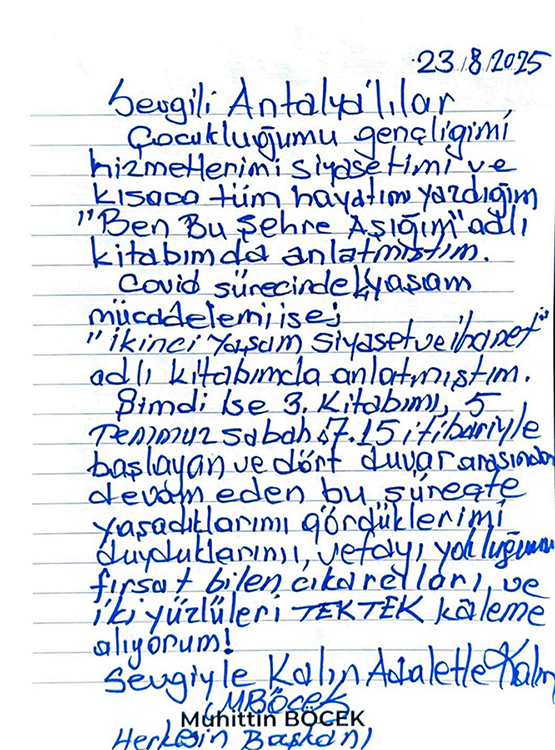 23/8/2025
Sevgili Antalya'lılar
Çocukluğumu gençliğimi
hizmetlerimi siyasetimi ve
kısaca tüm hayatım yazdığım
"Ben Bu Şehre Aşığım" adlı
kitabımda anlatmıştım.
Covid sürecindeki yaşam
mücadelemi ise;
"İkinci Yaşam Siyaset ve İhanet"
adlı kitabımda anlatmıştım.
Şimdi İse 3. Kitabımı, 5
Temmuz sabah 7.15 itibariyle
başlayan ve dört duvar arasından
devam eden bu süreçte
yaşadıklarımı gördüklerimi
duyduklarımı, vefayı yokluğumu
fırsat bilen çıkarcıları, ve
iki yüzlüleri TEK TEK kaleme
alıyorum!
Sevgiyle Kalın Adaletle Kalın
MBöcek
Muhittin BÖCEK
Herkesin Başkanı